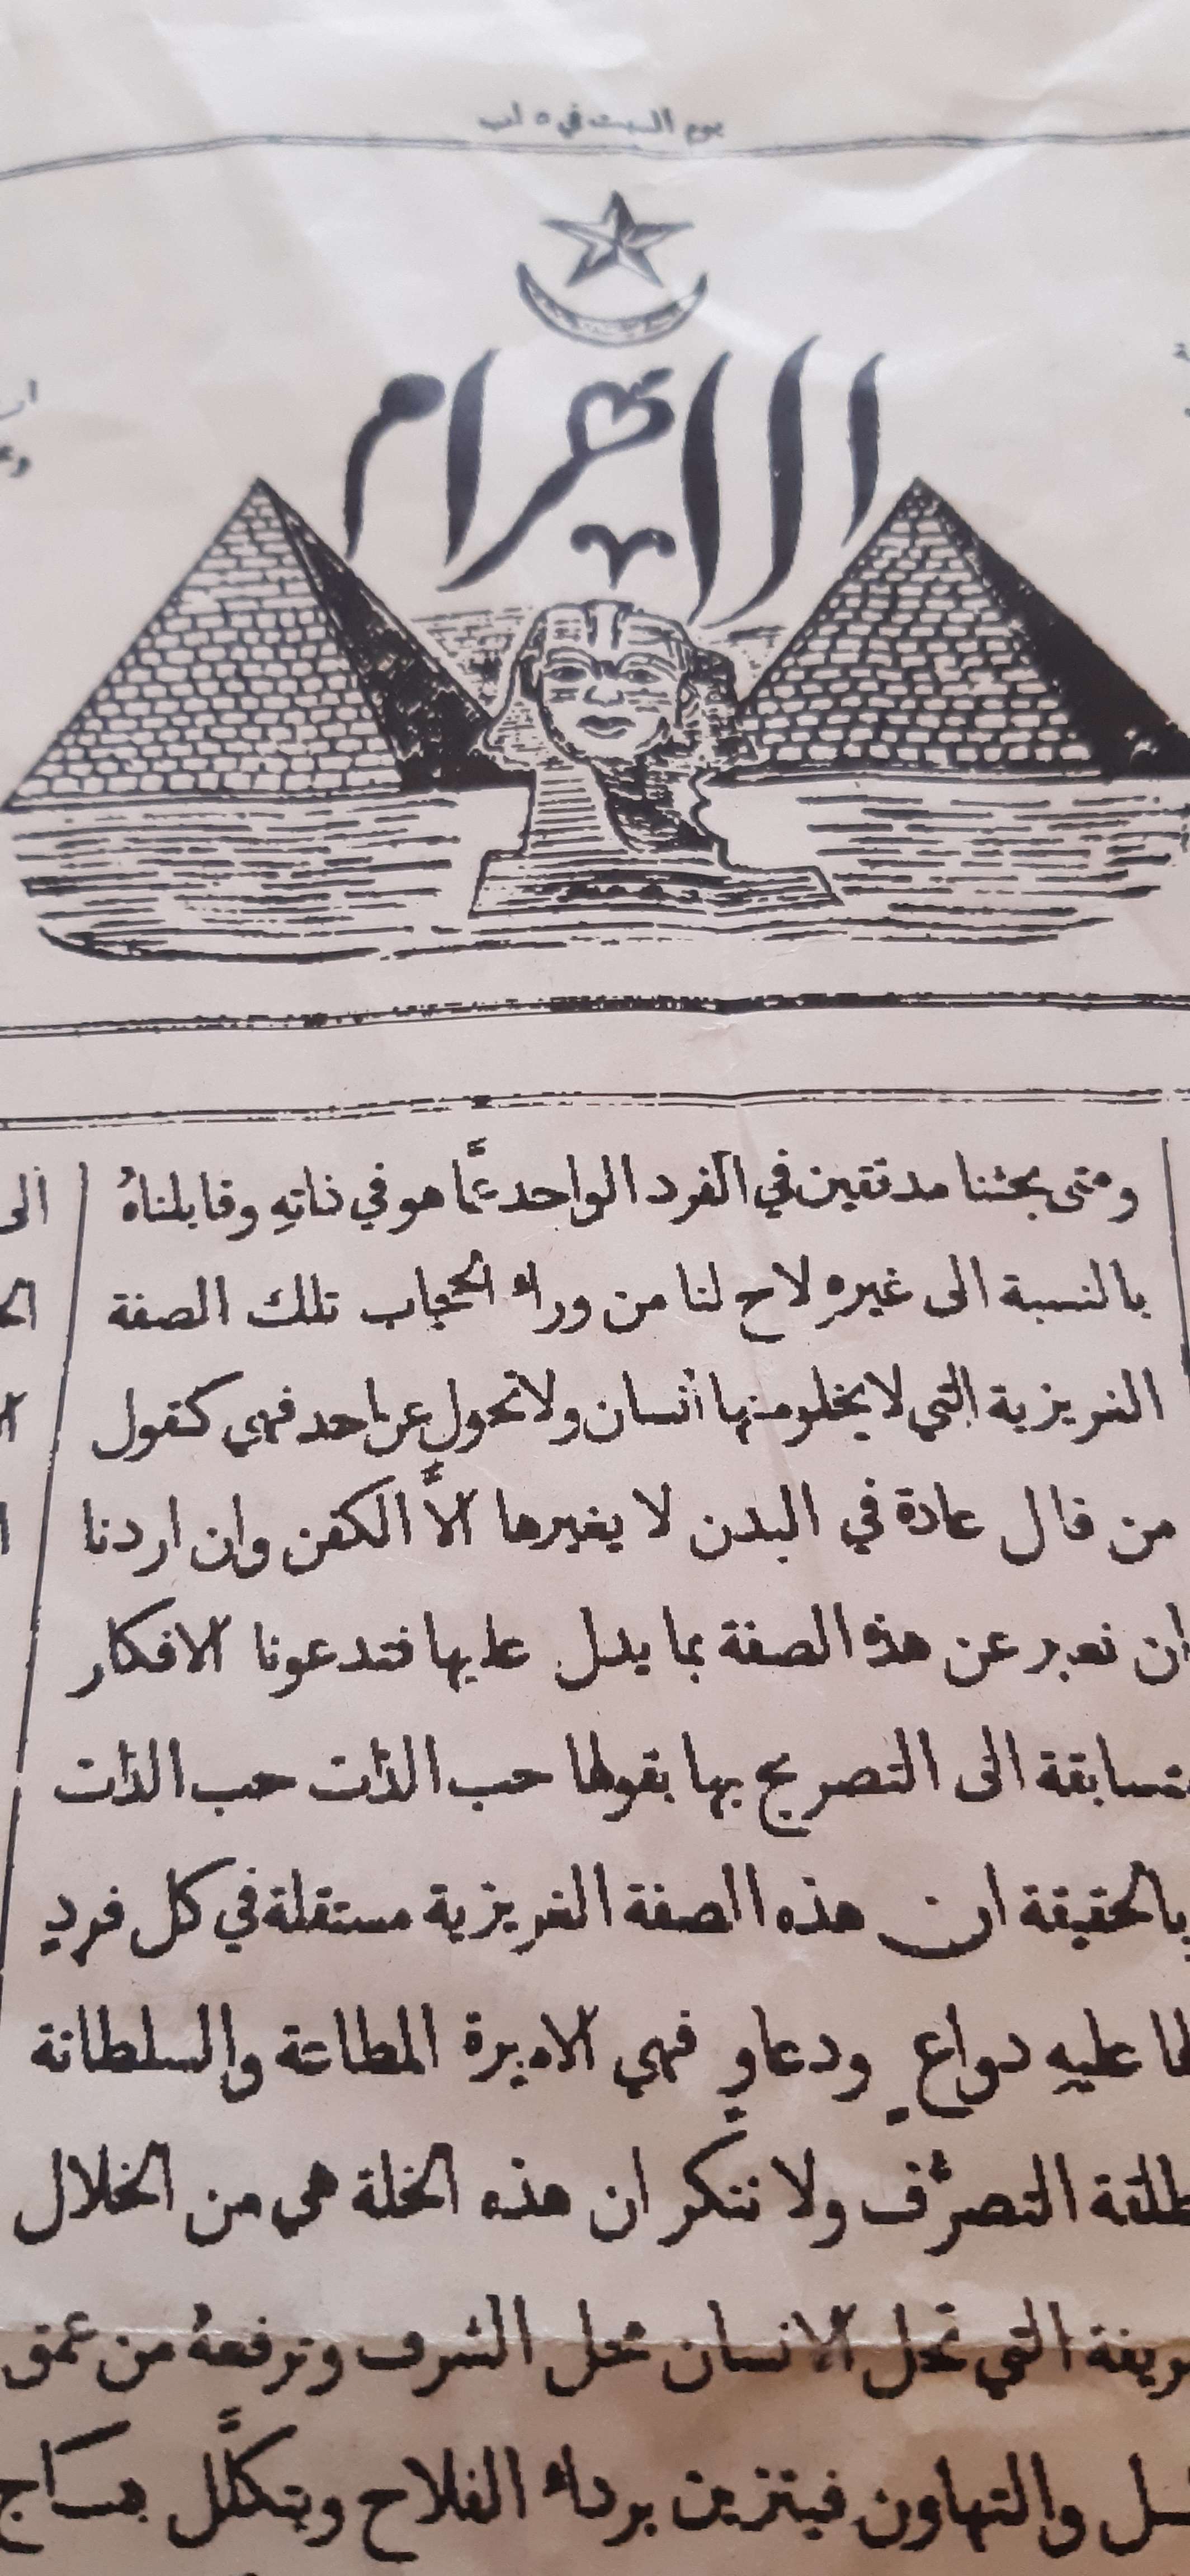 يوم السبت في ٥ اب
الاهرام
ومتى بحثنا مدققين في الفرد الواحد عمَّا هو في ذاتهِ وقابلناهُ
بالنسبة الى غيره لاح لنا من وراء الحجاب تلك الصفة
الغريزية التي لا يخلو منها انسان ولا تحول عن احد فهي كقول
من قال عادة في البدن لا يغيرها الاَّ الكفن وان اردنا
ان نعبر عن هذه الصفة بما يدل عليها فتدعونا الافكار
متسابقة الى التصريح بها بقولها حب الذات حب الذات
بالحقيقة ان هذه الصفة الغريزية مستقلة في كل فردٍ
لها عليهِ دواعٍ ودعاوٍ فهي الاميرة المطاعة والسلطانة
التصرُّف ولا ننكر ان هذه الخلة هي من الخلال
التي تحل الانسان محل الشرف وترفعهُ من عمق
والتهاون فيتزين برداء الفلاح ويتكلَّل بتاج
الى